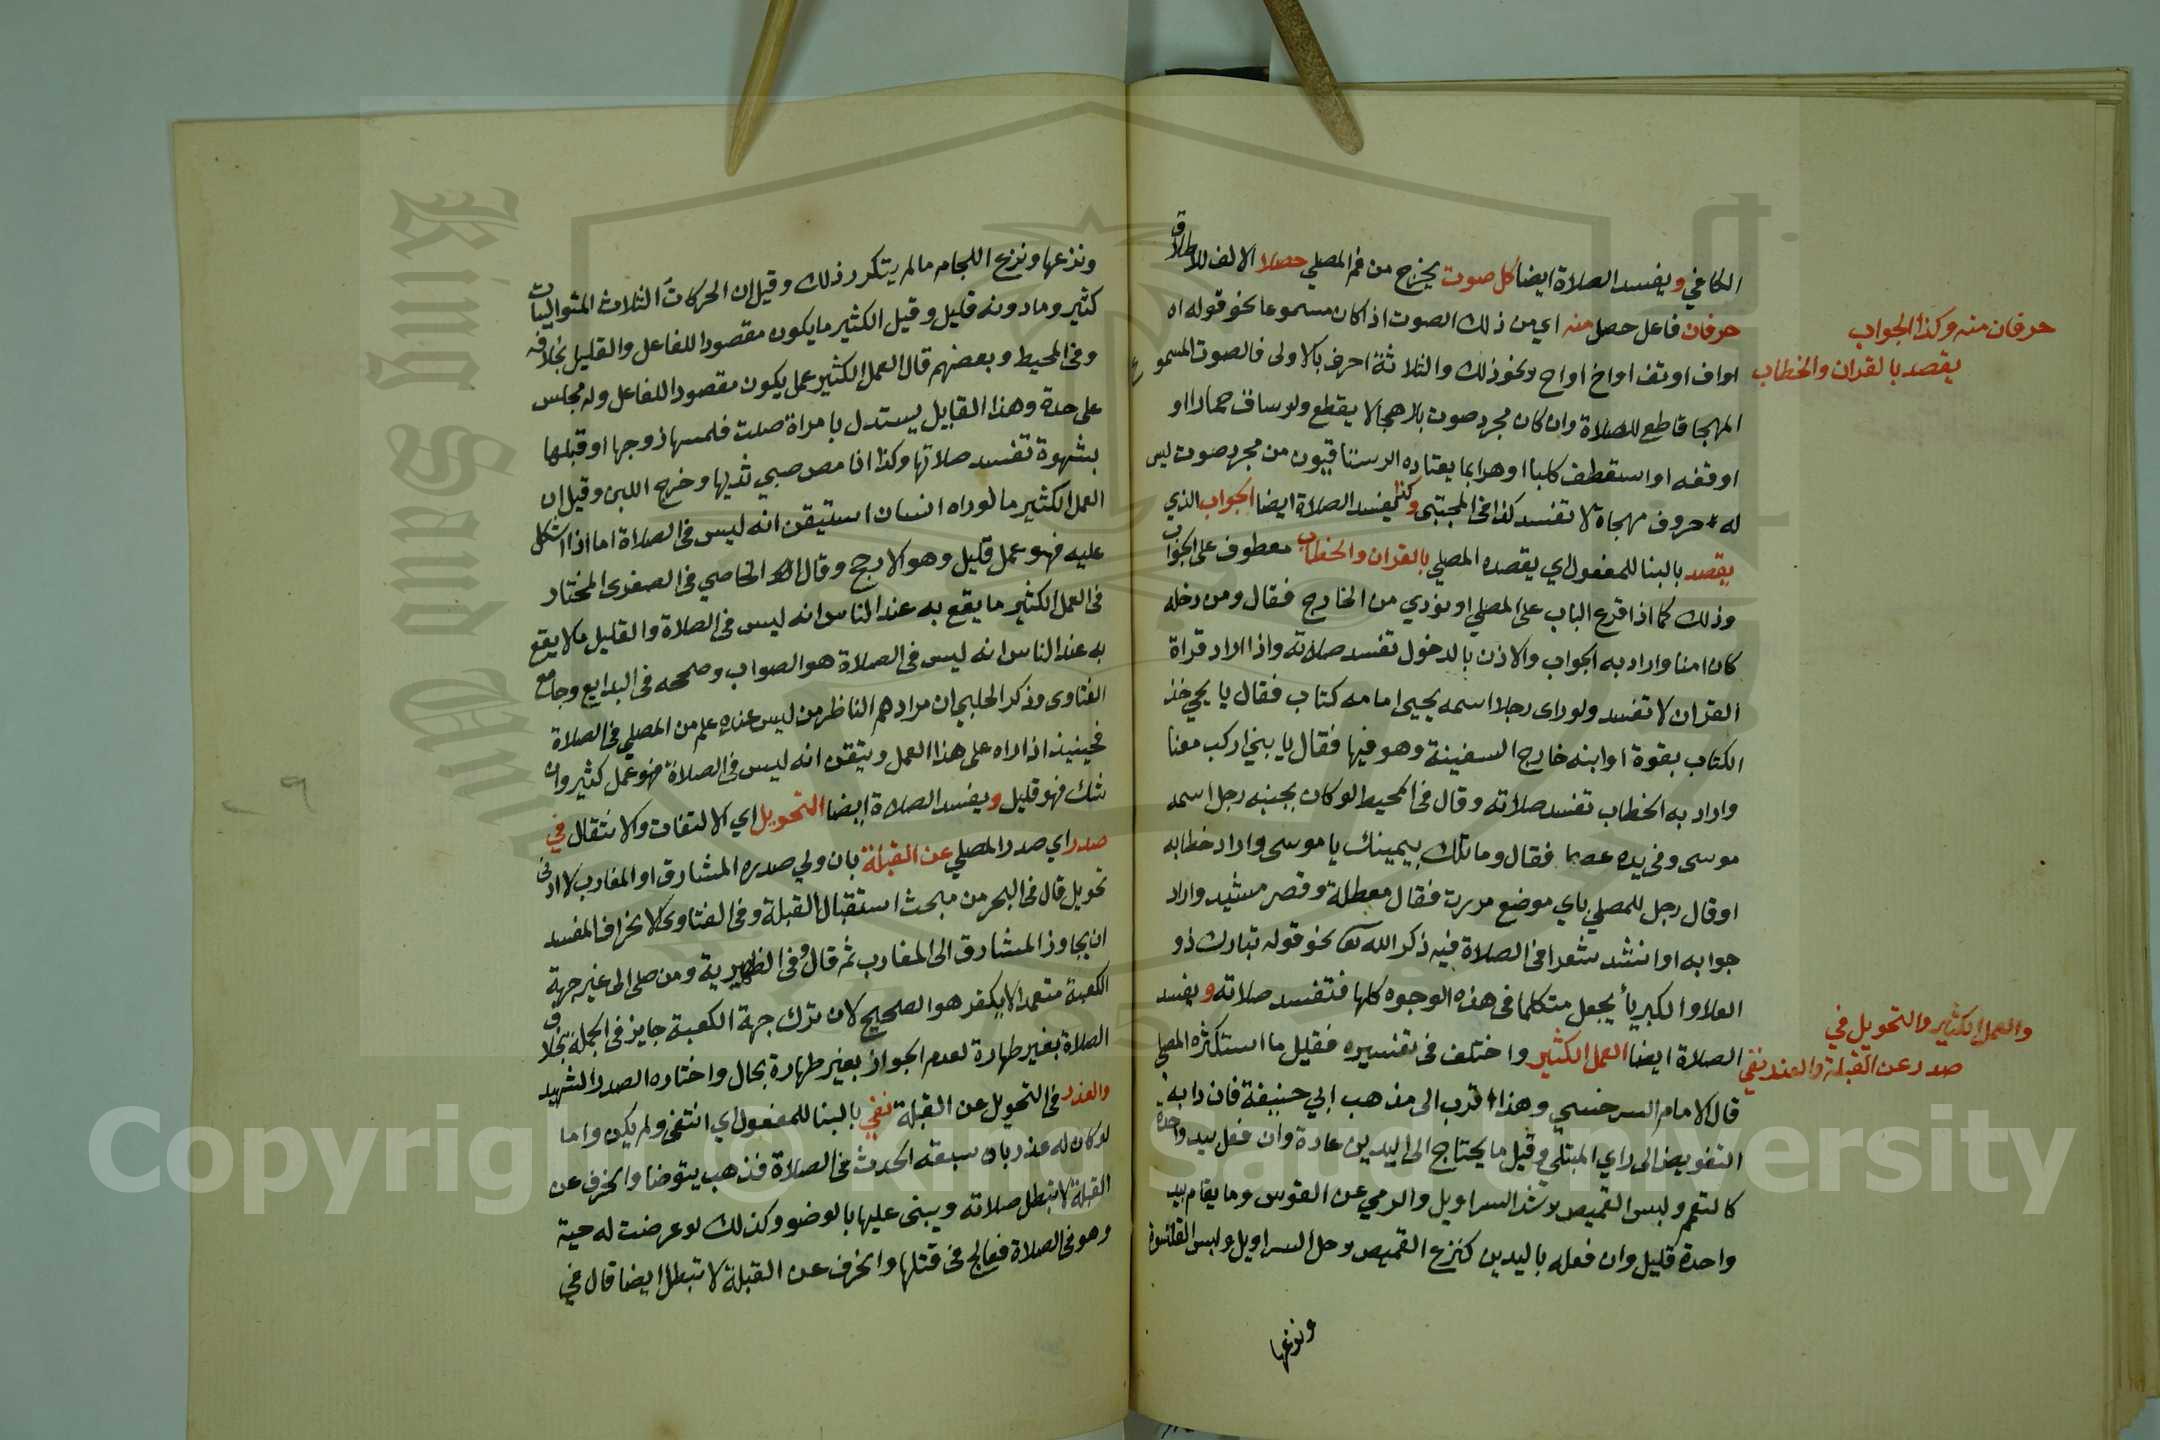 الكافي ويفسد الصلاة ايضا كل صوت يخرج من فم المصلي حصلا الالف للاطلاق
حرفان فاعل حصل منه اي من ذلك الصوت اذا كان مسموعا نحو قوله اه
اواف اوتف اواخ اواح ونحو ذلك والثلاثة احرف بالاولى فالصوت المسموع
المهجا قاطع للصلاة وان كان مجرد صوت بلا هجا لا يقطع ولو ساق حمارا او
اوقفه او استعطف كلبا او هرا بما يعتاده الرستاقيون من مجرد صوت ليس
له حروف مهجاة لا تفسد كذا في المجتبى وكذا يفسد الصلاة ايضا الجواب الذي
يقصد بالبنا للمفعول اي يقصده المصلي بالقران والخطاب معطوف على الجواب
وذلك كما اذا قرع الباب على المصلي او نودي من الخارج فقال ومن دخله
كان امنا واراد به الجواب والاذن بالدخول تفسد صلاته واذا اراد قراة
القران لا تفسد ولو راى رجلا اسمه يحيى امامه كتاب فقال يا يحيى خذ
الكتاب بقوة او ابنه خارج السفينة وهو فيها فقال يا بني اركب معنا
واراد به الخطاب تفسد صلاته وقال في المحيط لو كان بجنبه رجل اسمه
موسى وفي يده عصا فقال وما تلك بيمينك يا موسى واراد خطابه
او قال رجل للمصلي باي موضع مررت فقال معطلة وقصر مشيد واراد
جوابه او انشد شعرا في الصلاة فيه ذكر الله نحو قوله تبارك ذو
العلا والكبريا يجعل متكلما في هذه الوجوه كلها فتفسد صلاته ويفسد
الصلاة ايضا العمل الكثير واختلف في تفسيره فقيل ما استكثره المصلي
قال الامام السرخسي وهذا اقرب الى مذهب ابي حنيفة فان دابه
التفويض الى راي المبتلي وقيل ما يحتاج الى اليدين عادة وان فعل بيد واحدة
كالتعمم ولبس القميص وشد السراويل والرمي عن القوس وما يقام بيد
واحدة قليل وان فعله باليدين كنزع القميص وحل السراويل ولبس القلنسوة
ونزعها
حرفان منه وكذا الجواب
يقصد بالقران والخطاب
والعمل الكثير والتحويل في
صدر عن القبلة والعذر نفي
ونزعها ونزع اللجام ما لم يتكرر ذلك وقيل ان الحركات الثلاث المتواليات
كثير وما دونه قليل وقيل الكثير ما يكون مقصودا للفاعل والقليل بخلافه
وفي المحيط وبعضهم قال العمل الكثير عمل يكون مقصودا للفاعل وله مجلس
على حدة وهذا القايل يستدل بامراة صلت فلمسها زوجها او قبلها
بشهوة تفسد صلاتها وكذا اذا مص صبي ثديها وخرج اللبن وقيل ان
العمل الكثير ما لو راه انسان استيقن انه ليس في الصلاة اما اذا اشكل
عليه فهو عمل قليل وهو الارجح وقال الخاصي في الصغرى المختار
في العمل الكثير ما يقع به عند الناس انه ليس في الصلاة والقليل ما لا يقع
به عند الناس انه ليس في الصلاة هو الصواب وصححه في البدايع وجامع
الفتاوى وذكر الحلبي ان مرادهم الناظر من ليس عنده علم من المصلي في الصلاة
فحينيذ اذا راه على هذا العمل وتيقن انه ليس في الصلاة فهو عمل كثير وان
شك فهو قليل ويفسد الصلاة ايضا التحويل اي الالتفات والانتقال في
صدر اي صدر المصلي عن القبلة بان ولى صدره المشارق او المغارب لا ادنى
تحويل قال في البحر من مبحث استقبال القبلة وفي الفتاوى الانحراف المفسد
ان يجاوز المشارق الى المغارب ثم قال وفي الظهيرية ومن صلى الى غير جهة
الكعبة متعمدا لا يكفر هو الصحيح لان ترك جهة الكعبة جايز في الجملة بخلاف
الصلاة بغير طهارة لعدم الجواز بغير طهارة بحال واختاره الصدر الشهيد
والعذر في التحويل عن القبلة نفي بالبنا للمفعول اي انتفى ولم يكن واما
لو كان له عذر بان سبقه الحدث في الصلاة فذهب يتوضا وانحرف عن
القبلة لا تبطل صلاته ويبنى عليها بالوضو وكذلك لو عرضت له حية
وهو في الصلاة فعالج في قتلها وانحرف عن القبلة لا تبطل ايضا قال في
King Saud University
Copyright © King Saud University
1957